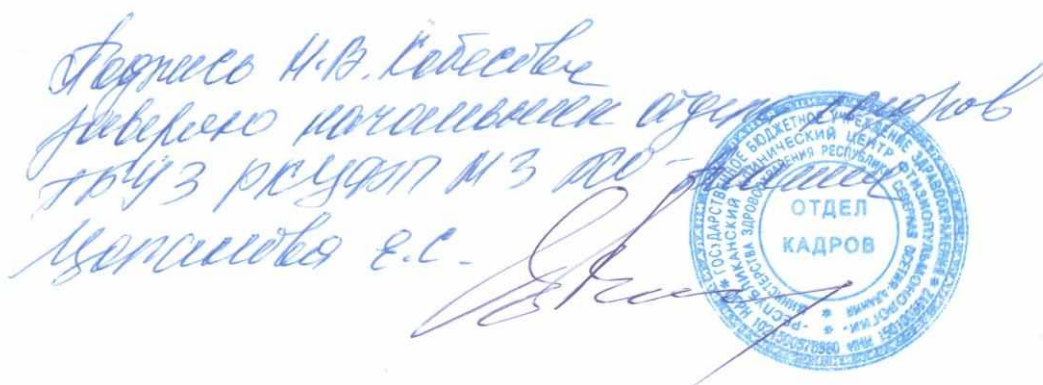 Подпись Н.В. Кобесовой
заверяю начальник отдела кадров
ГБУЗ РКЦФП МЗ РСО-Алания
Е.С.
ГОСУДАРСТВЕННОЕ БЮДЖЕТНОЕ УЧРЕЖДЕНИЕ ЗДРАВООХРАНЕНИЯ
РЕСПУБЛИКАНСКИЙ КЛИНИЧЕСКИЙ ЦЕНТР ФТИЗИОПУЛЬМОНОЛОГИИ
МИНИСТЕРСТВА ЗДРАВООХРАНЕНИЯ РЕСПУБЛИКИ СЕВЕРНАЯ ОСЕТИЯ-АЛАНИЯ
ОТДЕЛ
КАДРОВ